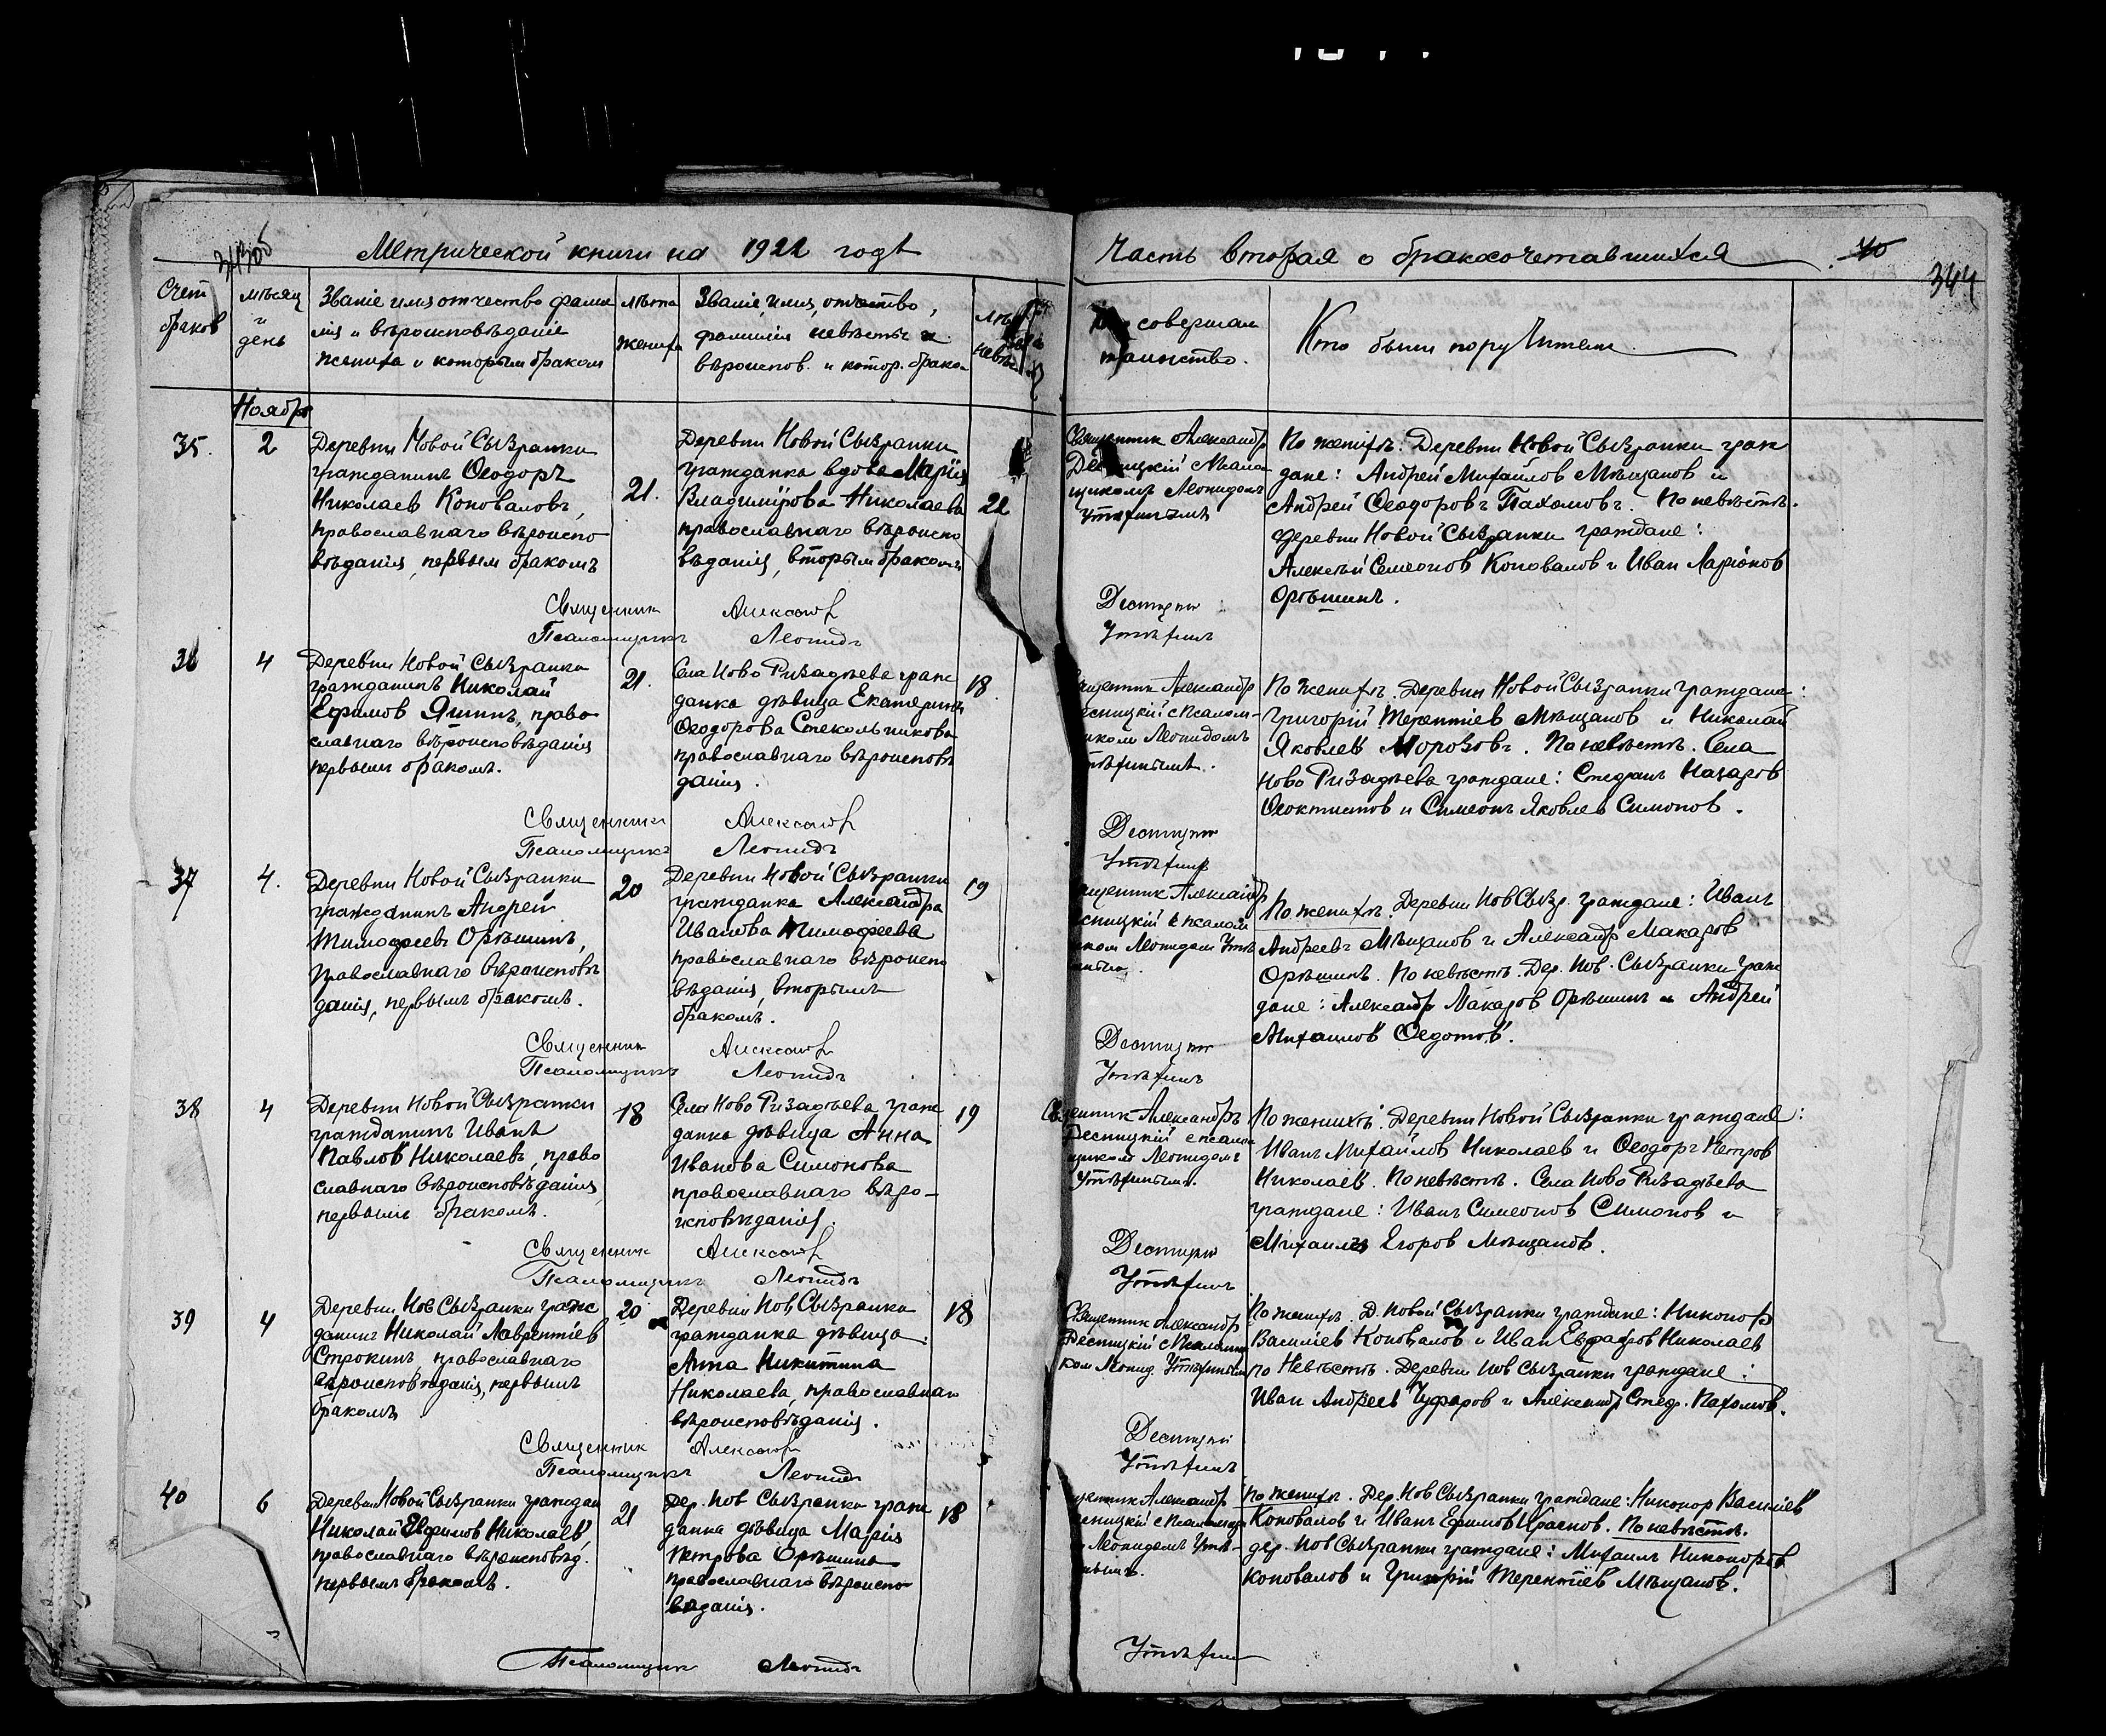 343об
Метрической книги на 1922 годъ
Часть вторая о бракосочетавшихся
40
344
Счет браков
мѣсяц и день
Званіе имя отчество фами
лія и вѣроисповѣданіе
жениха и которым браком
лѣта жениха
Званіе, имя, отчество,
фамилия невѣсты и
вѣроиспов. и котор. брако
невѣс
совершал
таинство.
Кто были поручители
Ноябрь
35.
2
Деревни Новой Сызранки
гражданинъ Ѳеодоръ
Николаев Коноваловъ,
православнаго вѣроиспо
вѣданія, первым бракомъ
21.
Деревни Новой Сызранки
гражданка вдова Марія
Владимірова Николаева
православнаго вѣроиспо
вѣданія, вторым бракомъ
22
Священник Александр
Десницкій с псалом
щиком Леонидомъ
Утѣхинымъ
По женихѣ: Деревни Новой Сызранки граж
дане: Андрей Михайлов Мѣщанов и
Андрей Ѳеодоровъ Пахомовъ. По невѣстѣ.
Деревни Новой Сызранки граждане:
Алексѣй Семеонов Коновалов и Иван Ларіонов
Орѣшинъ.
Священник Александр Десницкій
Псаломщикъ Леонидъ Утѣхинъ
36
4
Деревни Новой Сызранки
гражданинъ Николай
Ефимов Яшинъ, право
славнаго вѣроисповѣданія
первымъ бракомъ.
21.
Села Ново Ризадѣева граж
данка дѣвица Екатерина
Ѳеодорова Стекольникова
православнаго вѣроисповѣ
данія.
18.
щенник Александр
есницкій с псалом-
иком Леонидомъ
тѣхинымъ.
По женихѣ. Деревни Новой Сызранки граждане:
Григорій Терентіев Мѣщанов и Николай
Яковлев Морозовъ. По невѣстѣ. Села
Ново Ризадѣева граждане: Стефанъ Назаров
Ѳеоктистов и Симеонъ Яковлев Симонов.
Священникъ Александр Десницкій
Псаломщикъ Леонидъ Утѣхинъ
37
4.
Деревни Новой Сызранки
гражданинъ Андрей
Тимофеевъ Орѣшинъ,
православнаго вѣроисповѣ
данія, первымъ бракомъ.
20
Деревни Новой Сызранки
гражданка Александра
Иванова Тимофеева
православнаго вѣроиспо
вѣданія, вторымъ
бракомъ.
19
щенник Александр
сницкій с псалом
ком Леонидом Утѣ
По женихѣ. Деревни Нов Сызр. граждане: Иванъ
Андреевъ Мѣщанов и Александр Макаров
Орѣшинъ. По невѣстѣ. Дер. Нов. Сызранки граж
дане: Александр Макаров Орѣшинъ и Андрей
Михаилов Ѳедотов.
Священник Александр Десницкій
Псаломщикъ Леонидъ Утѣхинъ
38
4
Деревни Новой Сызранки
гражданинъ Иванъ
Павлов Николаевъ, право
славнаго вѣроисповѣданія
первымъ бракомъ.
18
Села Ново Ризадѣева граж
данка дѣвица Анна
Иванова Симонова
православнаго вѣро-
исповѣданія.
19
Священник Александръ
Десницкій с псалом
щиком Леонидомъ
Утѣхинымъ.
По женихѣ. Деревни Новой Сызранки граждане:
Иванъ Михайлов Николаев и Ѳеодоръ Петров
Николаев. По невѣстѣ. Села Ново Ризадѣева
граждане: Иванъ Симеонов Симонов и
Михаилъ Егоров Мѣщанов.
Священник Александр Десницкій
Псаломщикъ Леонидъ Утѣхинъ
39
4
Деревни Нов Сызранки граж
данинъ Николай Лаврентіев
Строкинъ, православнаго
вѣроисповѣданія, первымъ
бракомъ
20
Деревни Нов Сызранки
гражданка дѣвица
Анна Никитина
Николаева, православнаго
вѣроисповѣданія.
18
Священник Александр
Десницкій с псаломщи
ком Леонид. Утѣхиным
По женихѣ. Д. Новой Сызранки граждане: Никонор
Василіев Коновалов и Иван Евграфов Николаев
по Невѣстѣ. Деревни Нов Сызранки граждане:
Иван Андреев Чуфаров и Александр Стеф. Пахомов.
Священник Александр Десницкій
Псаломщикъ Леонидъ Утѣхинъ
40
6
Деревни Новой Сызранки граждан
Николай Евфимов Николаев
православнаго вѣроисповѣд.
первымъ бракомъ.
21
Дер. Нов Сызранки граж
данка дѣвица Марія
Петрова Орѣшина
православнаго вѣроиспо
вѣданія.
18
щенник Александр
есницкій с псаломщи
Леонидомъ Утѣ-
нымъ.
По женихѣ. Дер. Нов Сызранки граждане: Никонор Василіев
Коновалов и Иванъ Ефимов Краснов. По невѣстѣ.
дер. Нов Сызранки граждане: Михаилъ Никоноров
Коновалов и Григорій Терентіев Мѣщанов.
Псаломщик Леонидъ Утѣхин